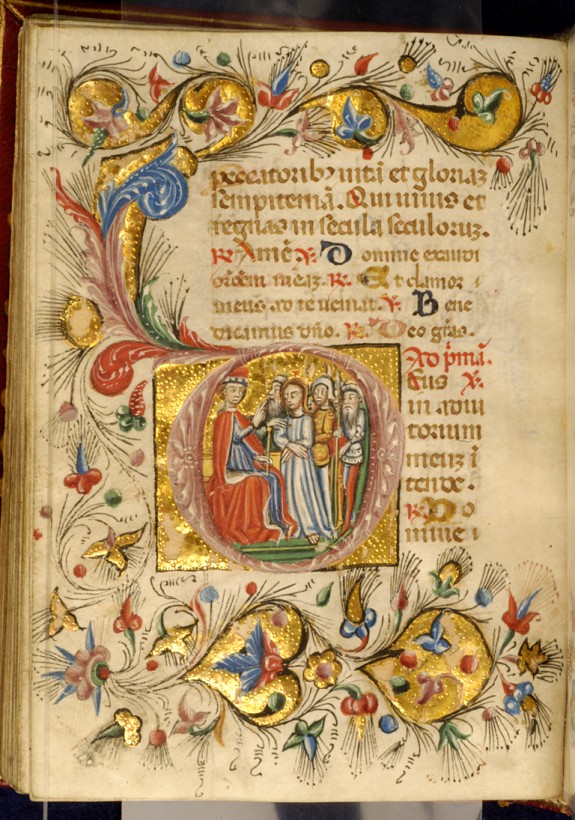 peccatoribꝫ uitã et gloriaꝫ
sempiternã. Qui uiuis et
regnas in secula seculoruꝫ.
℟ Amẽ ℣. Domine exaudi
orõem meaꝫ. ℟. Et clamor
meus ad te ueniat. ℣. Bene
dicamus dño. ℟. Deo grãs.
Ad pͥmã.
Deus ℣.
in adiu
torium
meuꝫ ĩ
tende.
℟. Do
mine